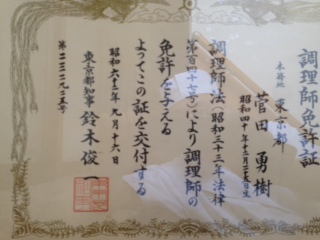 調理師免許証
本籍地 東京都
菅田 勇樹
昭和四十年十二月二十五日生
調理師法(昭和三十三年法律
第百四十七号)により調理師の
免許を与える
よってこの証を交付する
昭和六十三年九月十六日
東京都知事 鈴木俊一